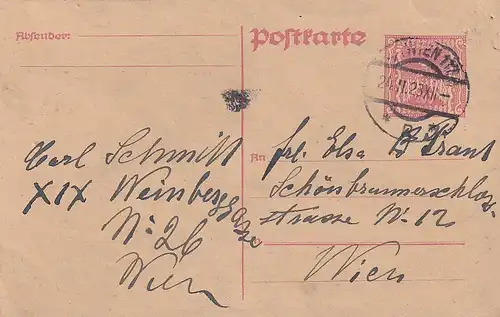 Absender:
Postkarte
WIEN
Carl Schmitt
XIX Weinberggasse
No 26
Wien
An
frl. Elsa Kraut
Schönbrunnerschloss-
strasse No 12
Wien